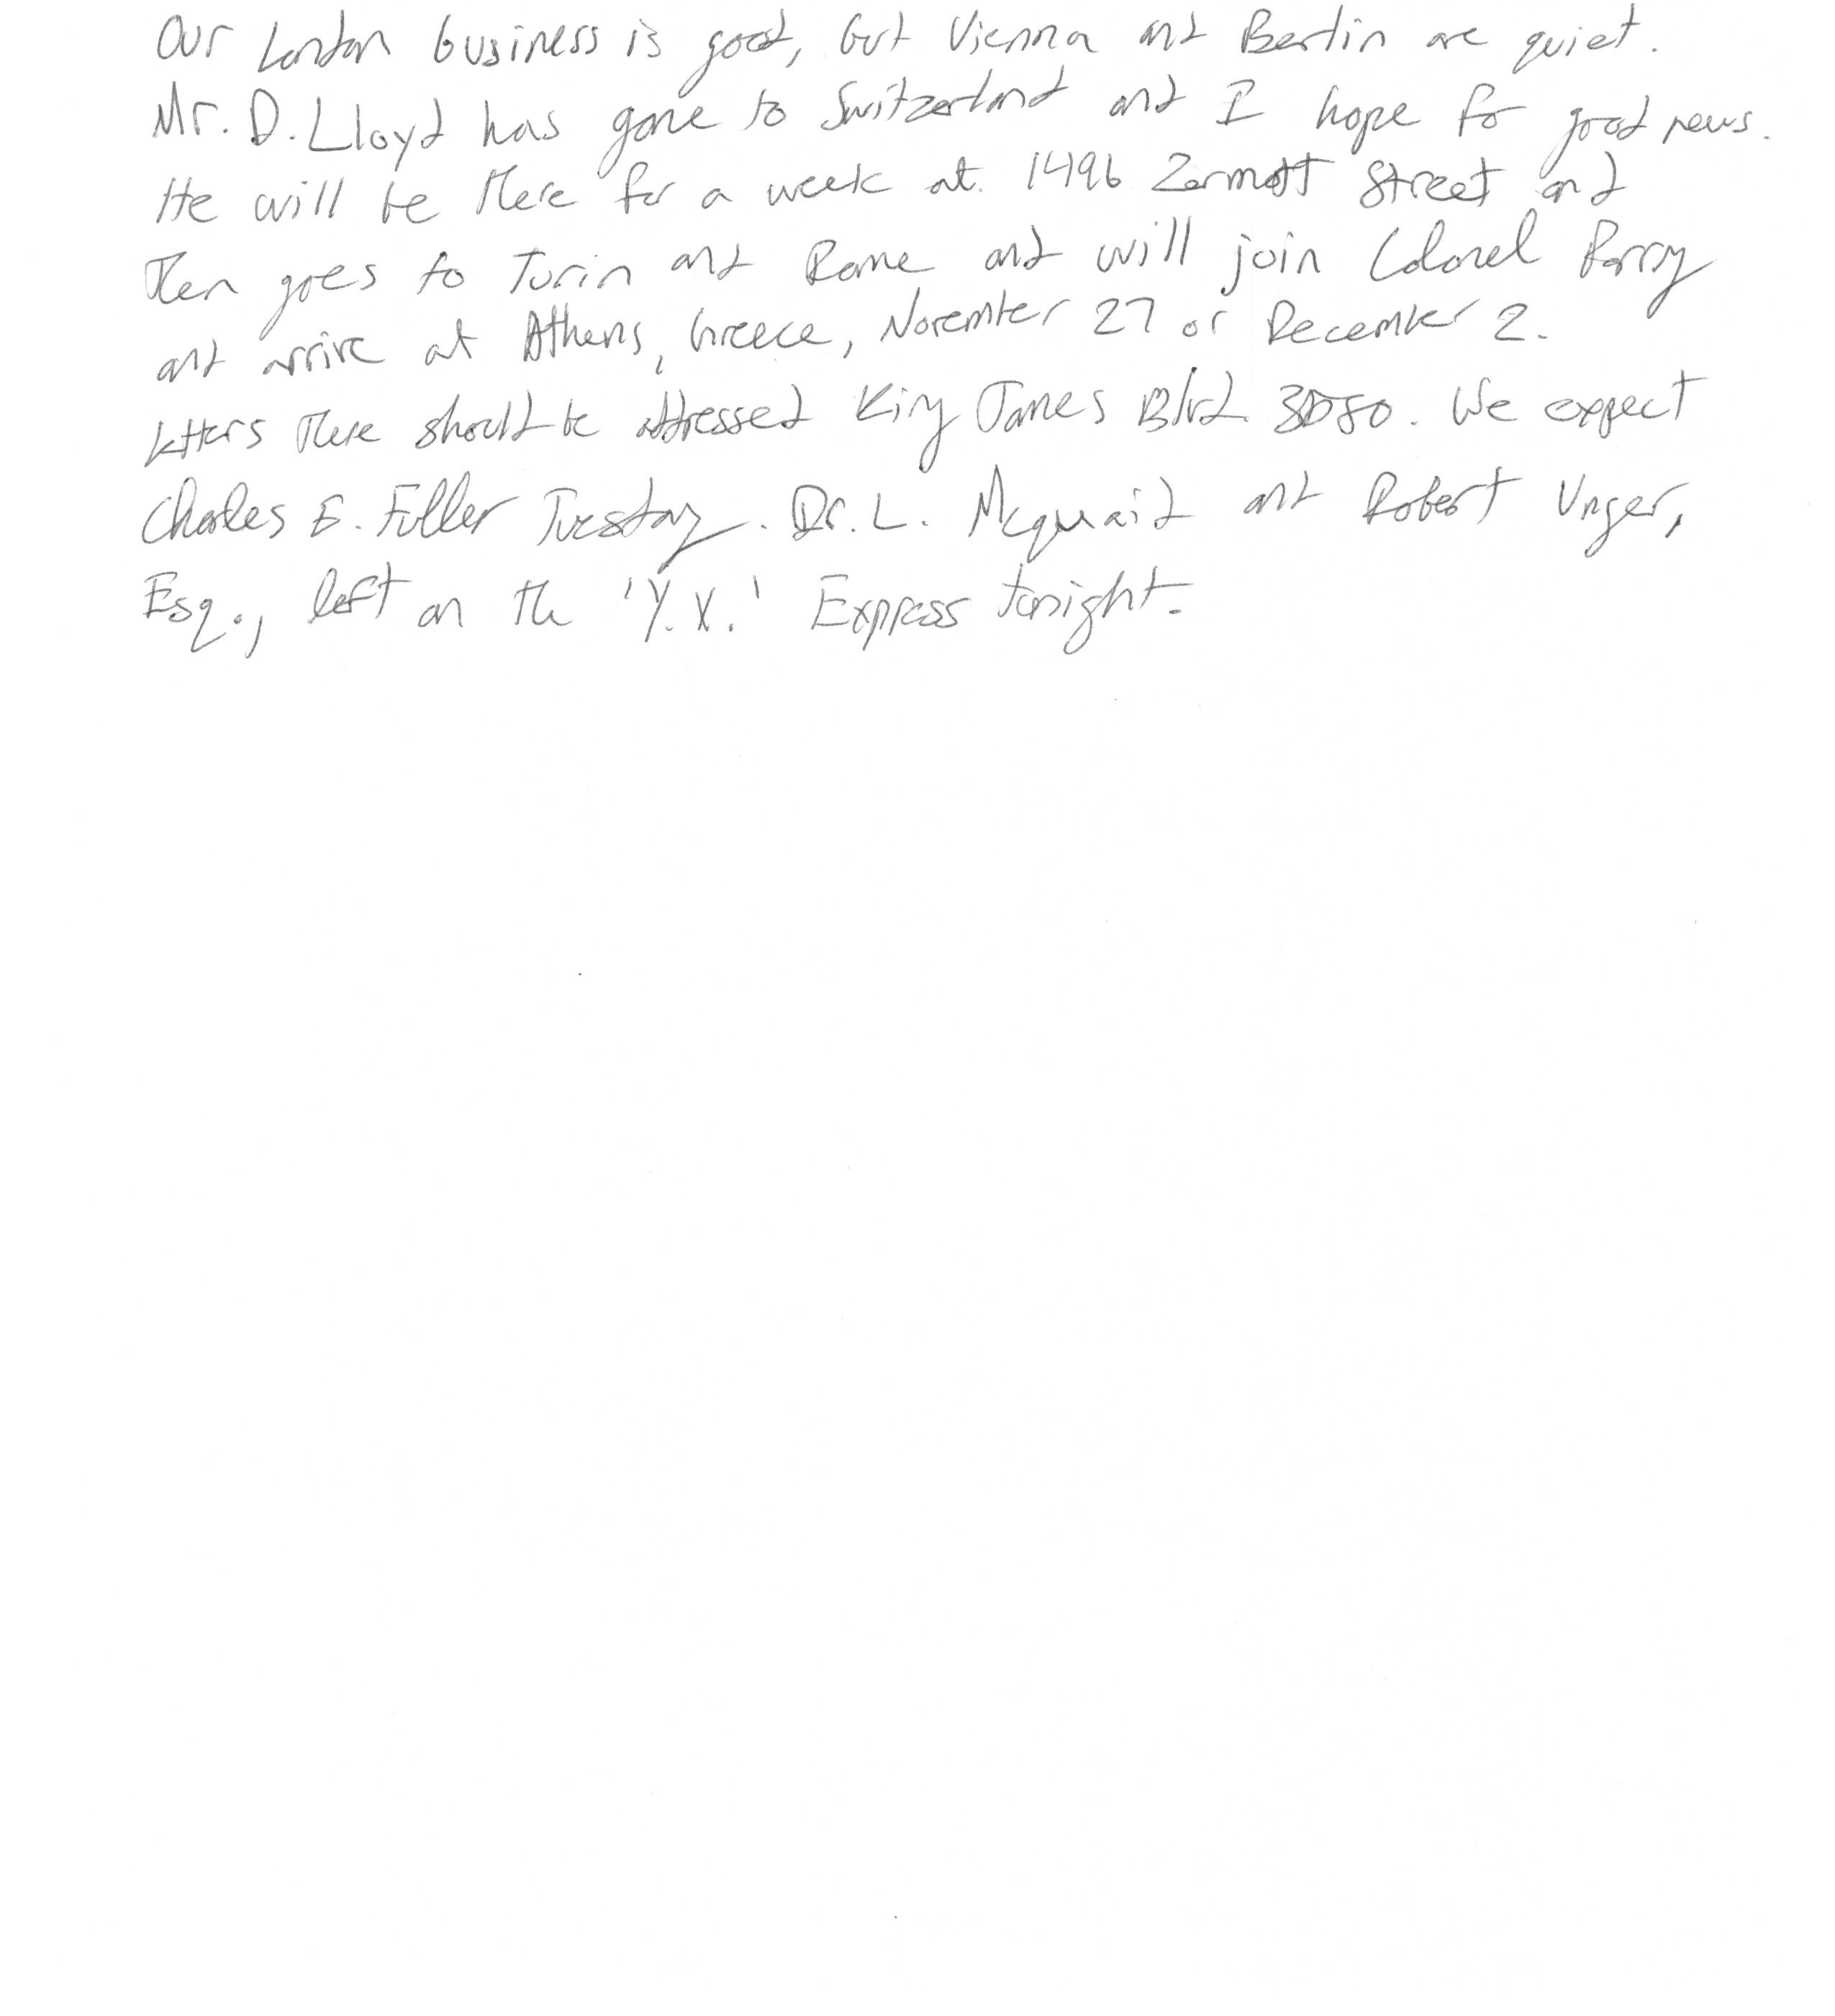 Our London business is good, but Vienna and Berlin are quiet.
Mr. D. Lloyd has gone to Switzerland and I hope for good news.
He will be there for a week at 1496 Zermott Street and
then goes to Turin and Rome and will join Colonel Parry
and arrive at Athens, Greece, November 27 or December 2.
Letters there should be addressed King James Blvd. 3580. We expect
Charles E. Fuller Tuesday. Dr. L. Mcquaid and Robert Unger,
Esq., left on the 'Y.X.' Express tonight.